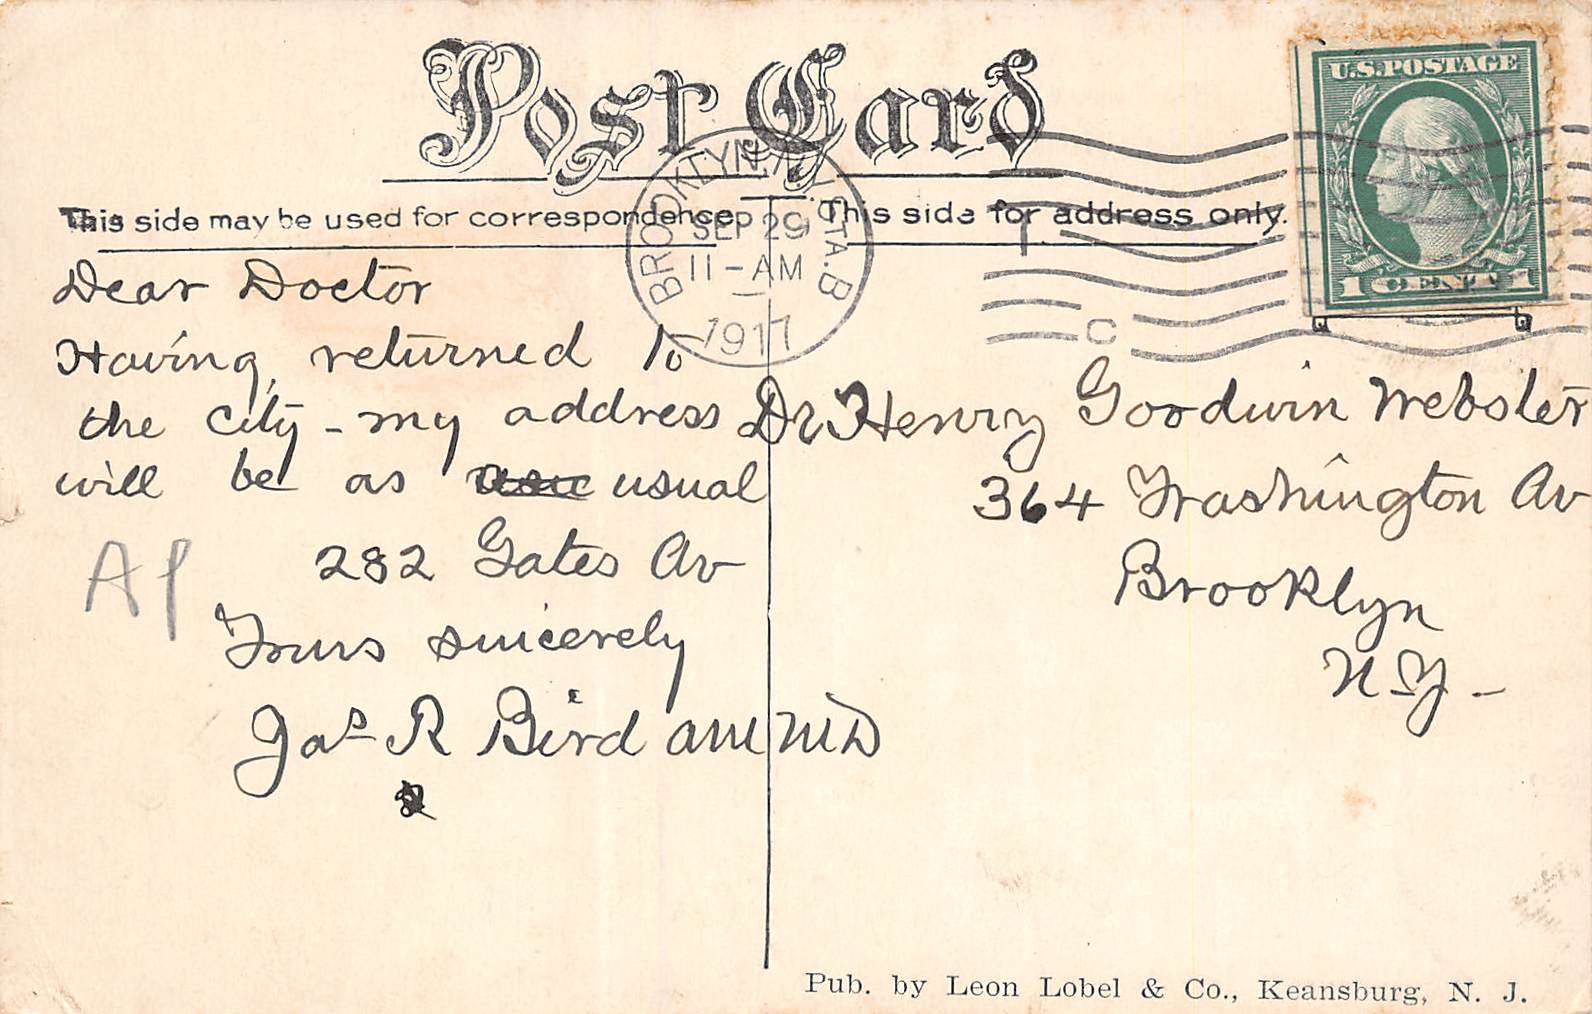 Post Card
This side may be used for correspondence
This side for address only.
BROOKLYN, N.Y. STA. B
SEP 29
11-AM
1917
C
U.S. POSTAGE
1 CENT 1
Dear Doctor
Having returned to
the city - my address
will be as usual
282 Gates Av
Yours sincerely
Jas R Bird AM MD
Dr Henry Goodwin Webster
364 Washington Av
Brooklyn
N.Y -
Pub. by Leon Lobel & Co., Keansburg, N. J.